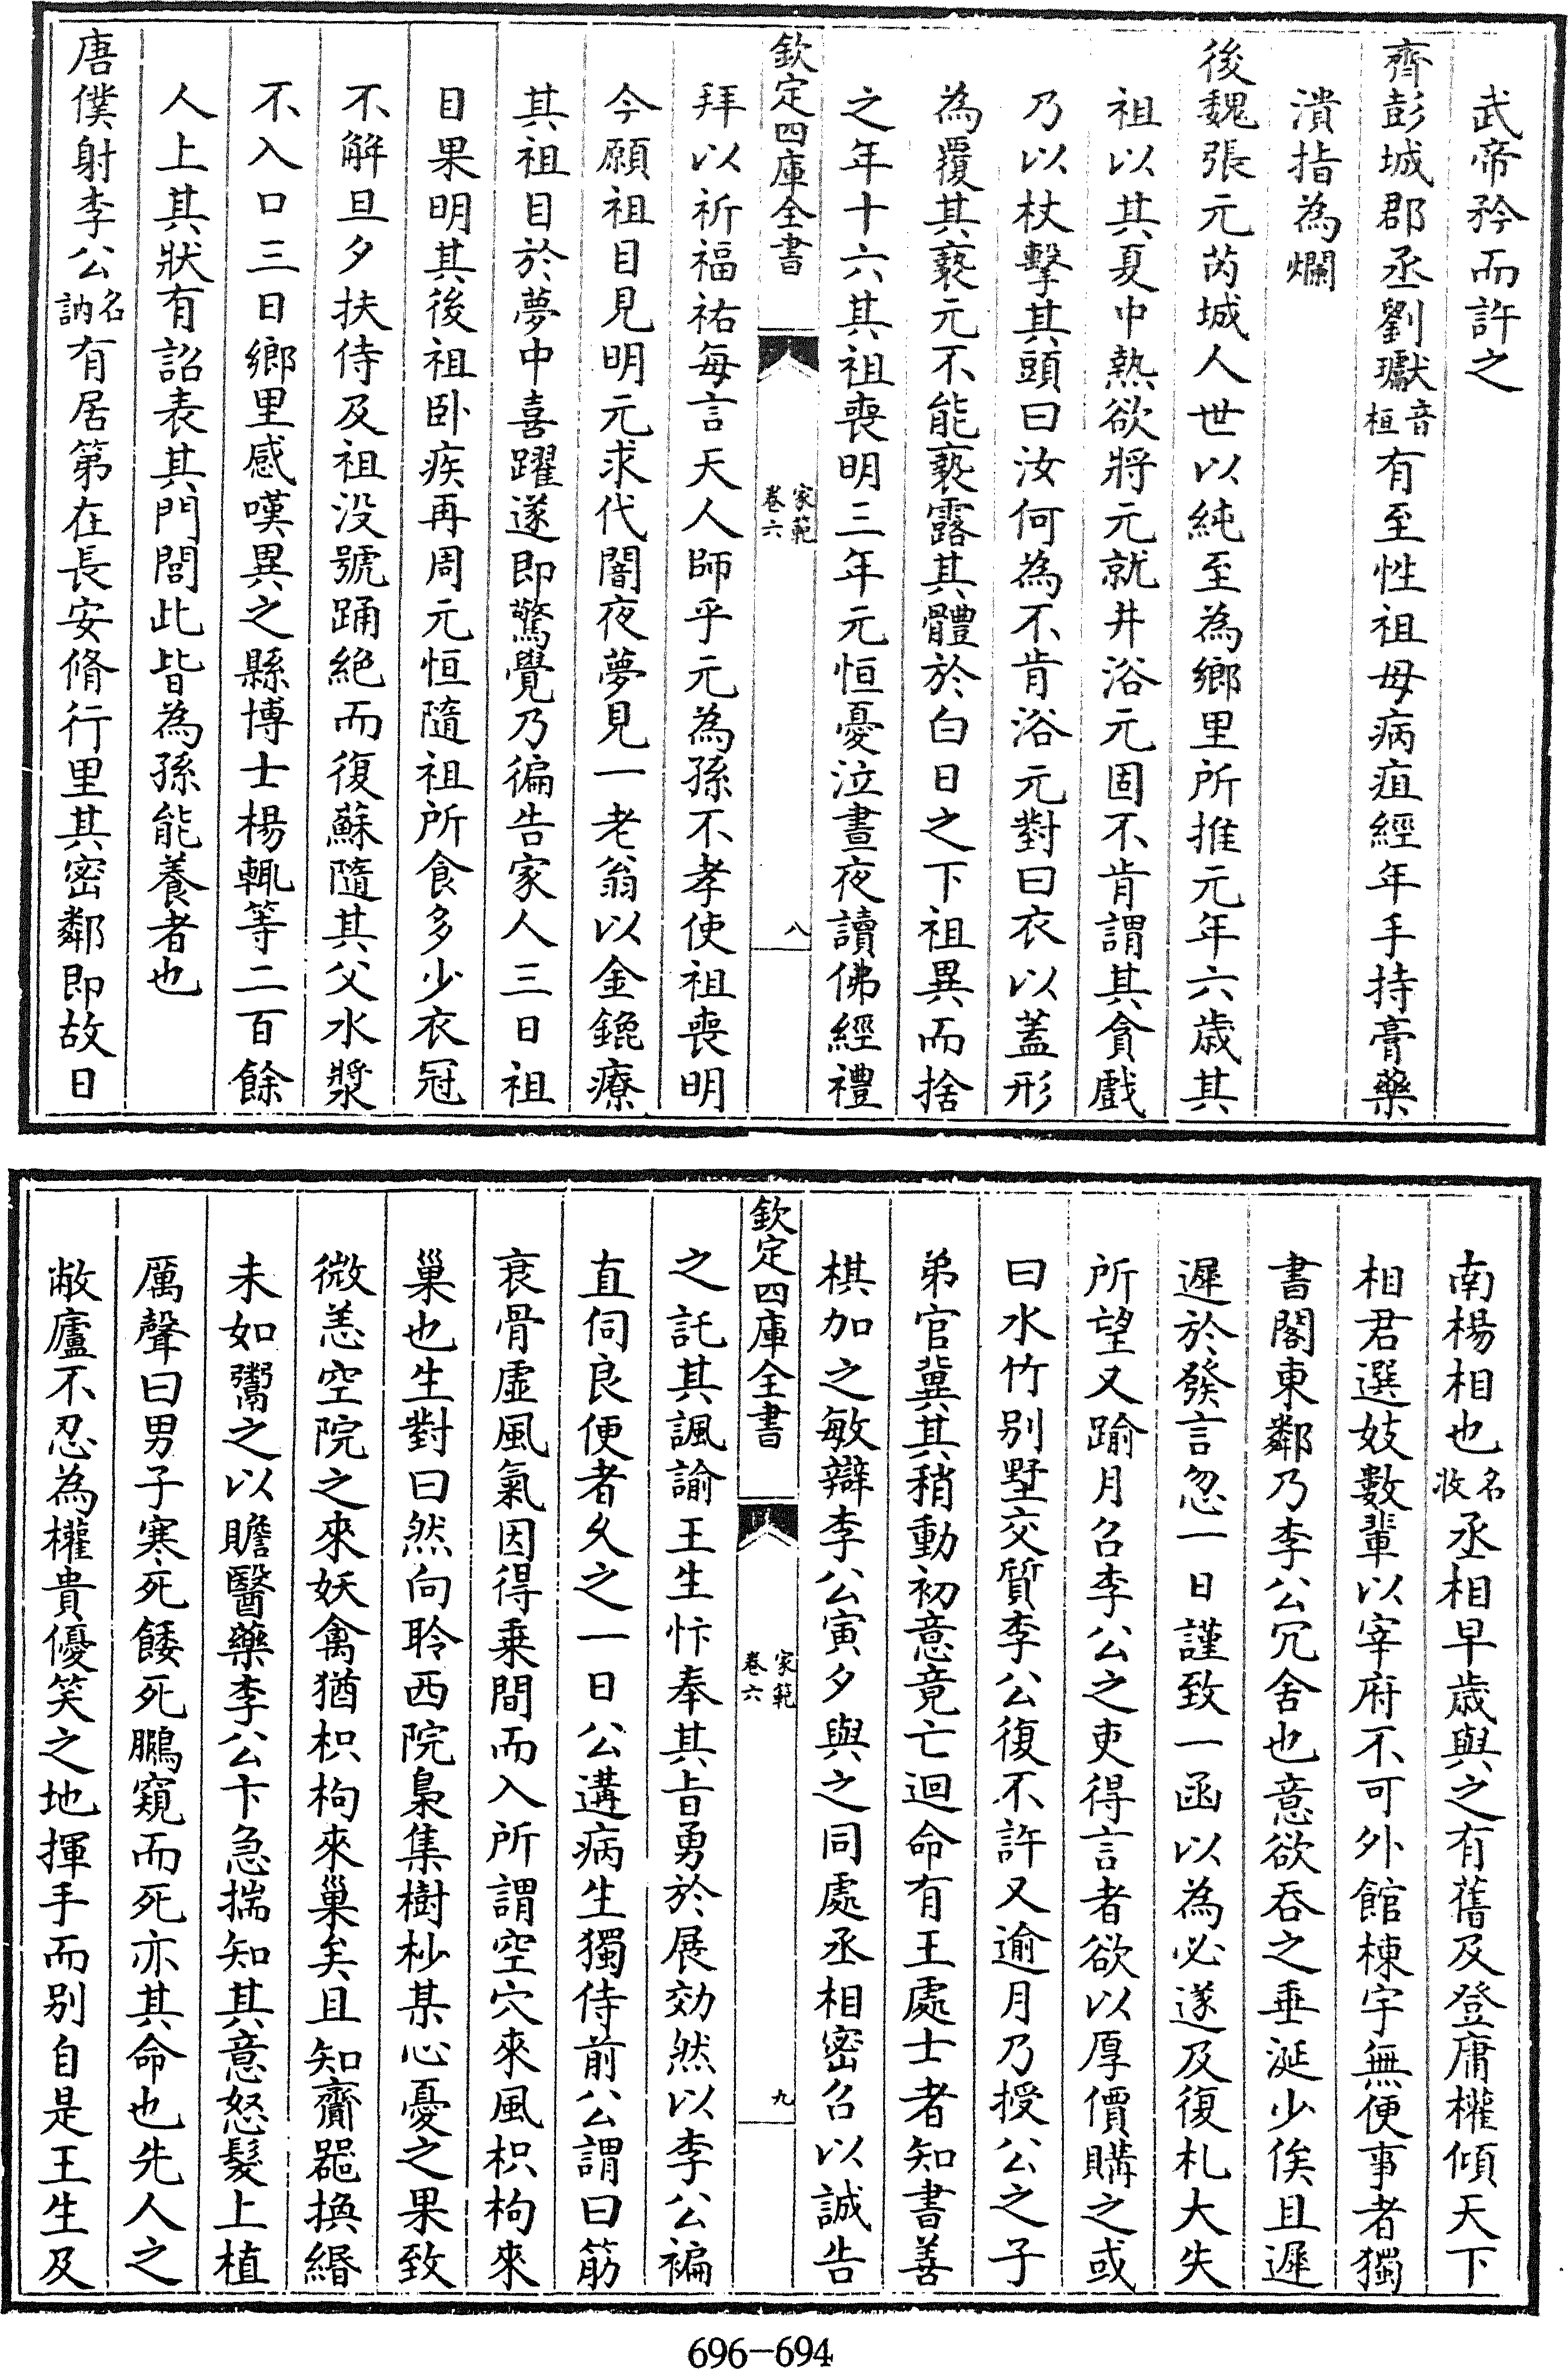 武帝矜而許之
齊彭城郡丞劉瓛音桓有至性祖母病疽經年手持膏藥
漬指為爛
後魏張元芮城人世以純至為鄉里所推元年六歲其
祖以其夏中熱欲將元就井浴元固不肯謂其貪戲
乃以杖擊其頭曰汝何為不肯浴元對曰衣以蓋形
為覆其褻元不能褻露其體於白日之下祖異而捨
之年十六其祖喪明三年元恒憂泣晝夜讀佛經禮
欽定四庫全書
家範
卷六
八
拜以祈福祐每言天人師乎元為孫不孝使祖喪明
今願祖目見明元求代闇夜夢見一老翁以金鎞療
其祖目於夢中喜躍遂即驚覺乃徧告家人三日祖
目果明其後祖卧疾再周元恒隨祖所食多少衣冠
不解旦夕扶侍及祖没號踊絶而復蘇隨其父水漿
不入口三日鄉里感嘆異之縣博士楊輒等二百餘
人上其狀有詔表其門閭此皆為孫能養者也
唐僕射李公名訥有居第在長安脩行里其密鄰即故日
南楊相也名收丞相早歲與之有舊及登庸權傾天下
相君選妓數輩以宰府不可外館棟宇無便事者獨
書閣東鄰乃李公冗舍也意欲吞之垂涎少俟且遲
遲於發言忽一日謹致一函以為必遂及復札大失
所望又踰月召李公之吏得言者欲以厚價購之或
曰水竹别墅交質李公復不許又逾月乃授公之子
弟官冀其稍動初意竟亡迴命有王處士者知書善
棋加之敏辯李公寅夕與之同處丞相密召以誠告
欽定四庫全書
家範
卷六
九
之託其諷諭王生忭奉其旨勇於展効然以李公褊
直伺良便者久之一日公遘病生獨侍前公謂曰筋
衰骨虛風氣因得乗間而入所謂空穴來風枳枸來
巢也生對曰然向聆西院梟集樹杪某心憂之果致
微恙空院之來妖禽猶枳枸來巢矣且知賫器換緡
未如鬻之以贍醫藥李公卞急揣知其意怒髮上植
厲聲曰男子寒死餧死鵩窺而死亦其命也先人之
敝廬不忍為權貴優笑之地揮手而别自是王生及
696-694